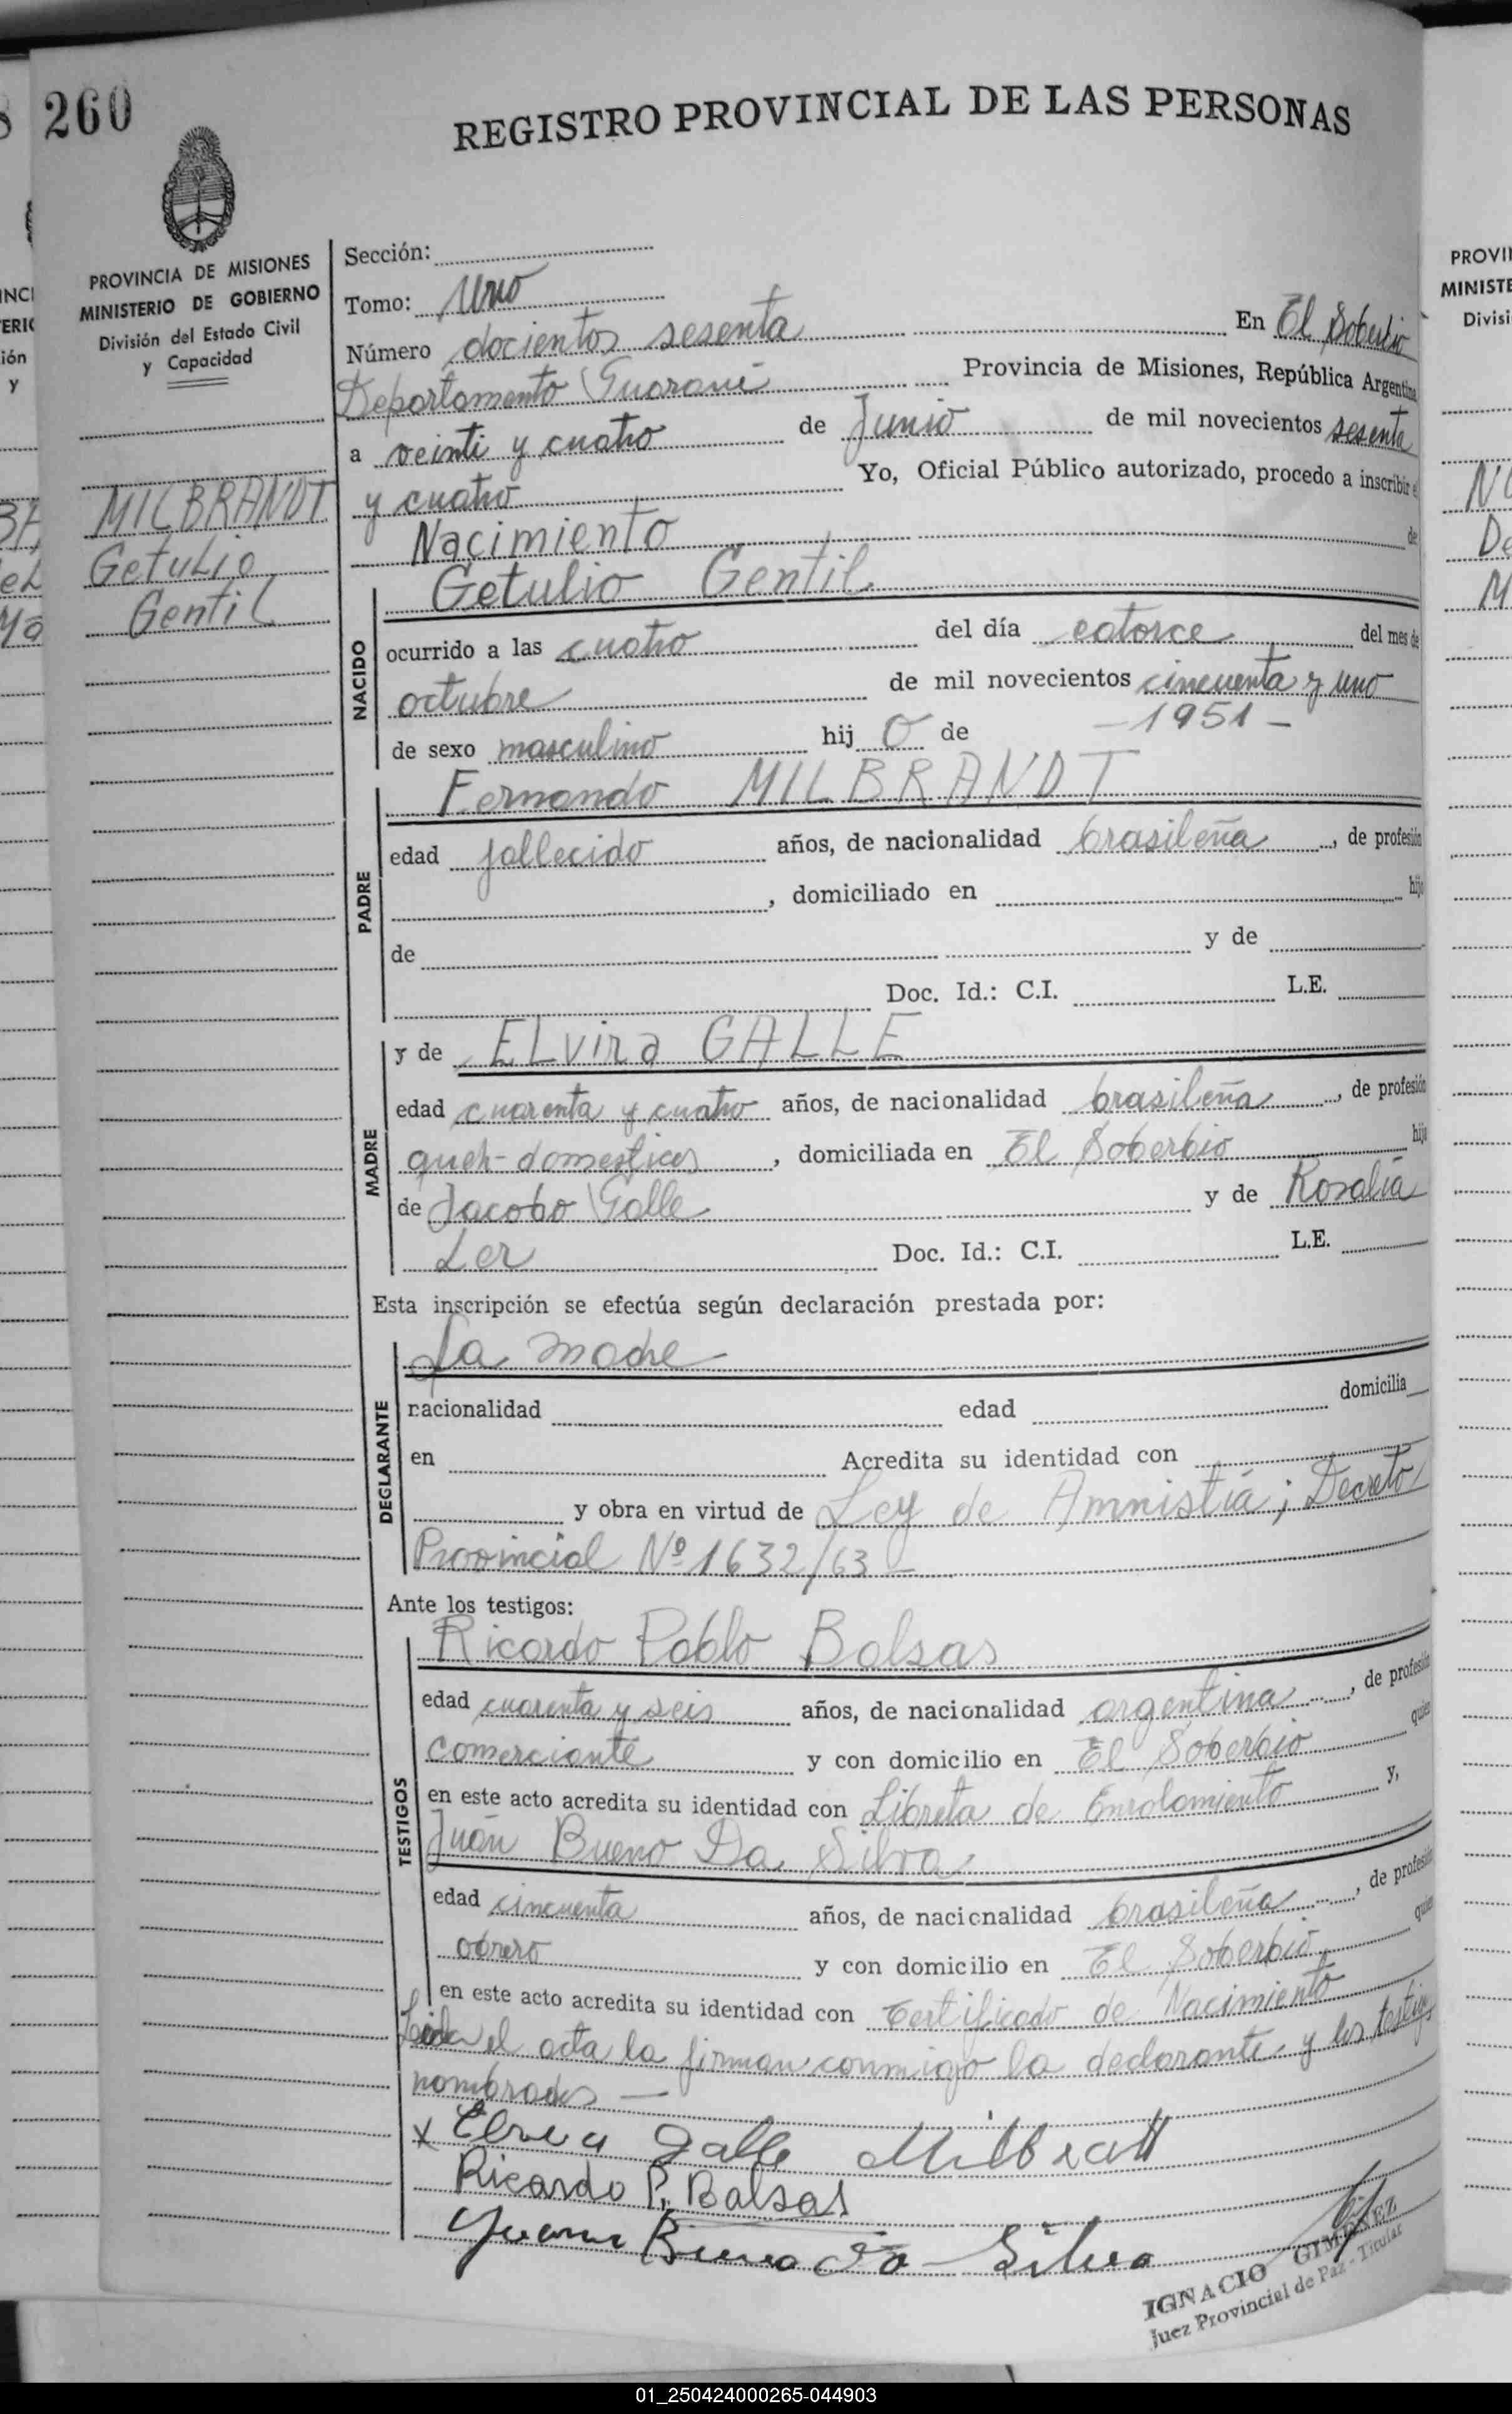 260
REGISTRO PROVINCIAL DE LAS PERSONAS
PROVINCIA DE MISIONES
MINISTERIO DE GOBIERNO
División del Estado Civil
y Capacidad
MILBRANDT
Getulio
Gentil
Sección:
Tomo: Uno
Número docientos sesenta En El Soberbio
Departamento Guaraní Provincia de Misiones, República Argentina
a veinti y cuatro de Junio de mil novecientos sesenta
y cuatro Yo, Oficial Público autorizado, procedo a inscribir el
Nacimiento de
Getulio Gentil
NACIDO
ocurrido a las cuatro del día catorce del mes de
octubre de mil novecientos cincuenta y uno
- 1951 -
de sexo masculino hij o de
Fernando MILBRANDT
PADRE
edad fallecido años, de nacionalidad brasileña, de profesión
, domiciliado en hijo
de y de
Doc. Id.: C.I. L.E.
y de ELvira GALLE
MADRE
edad cuarenta y cuatro años, de nacionalidad brasileña, de profesión
queh-domesticos, domiciliada en El Soberbio hija
de Jacobo Galle y de Rosalía
Ler Doc. Id.: C.I. L.E.
Esta inscripción se efectúa según declaración prestada por:
La madre
DECLARANTE
nacionalidad edad domicilia
en Acredita su identidad con
y obra en virtud de Ley de Amnistía; Decreto
Provincial Nº 1632/63 -
Ante los testigos:
Ricardo Pablo Balsas
TESTIGOS
edad cuarenta y seis años, de nacionalidad argentina, de profesión
comerciante y con domicilio en El Soberbio quien
en este acto acredita su identidad con Libreta de Enrolamiento y,
Juan Bueno Da Silva
edad cincuenta años, de nacionalidad brasileña, de profesión
obrero y con domicilio en El Soberbio, quien
en este acto acredita su identidad con Certificado de Nacimiento
Leida el acta la firman conmigo la declarante y los testigos
nombrados —
x Elvira Galle Milbratt
Ricardo P. Balsas
Juan Bueno da Silva
IGNACIO GIMENEZ
Juez Provincial de Paz - Titular
01_250424000265-044903